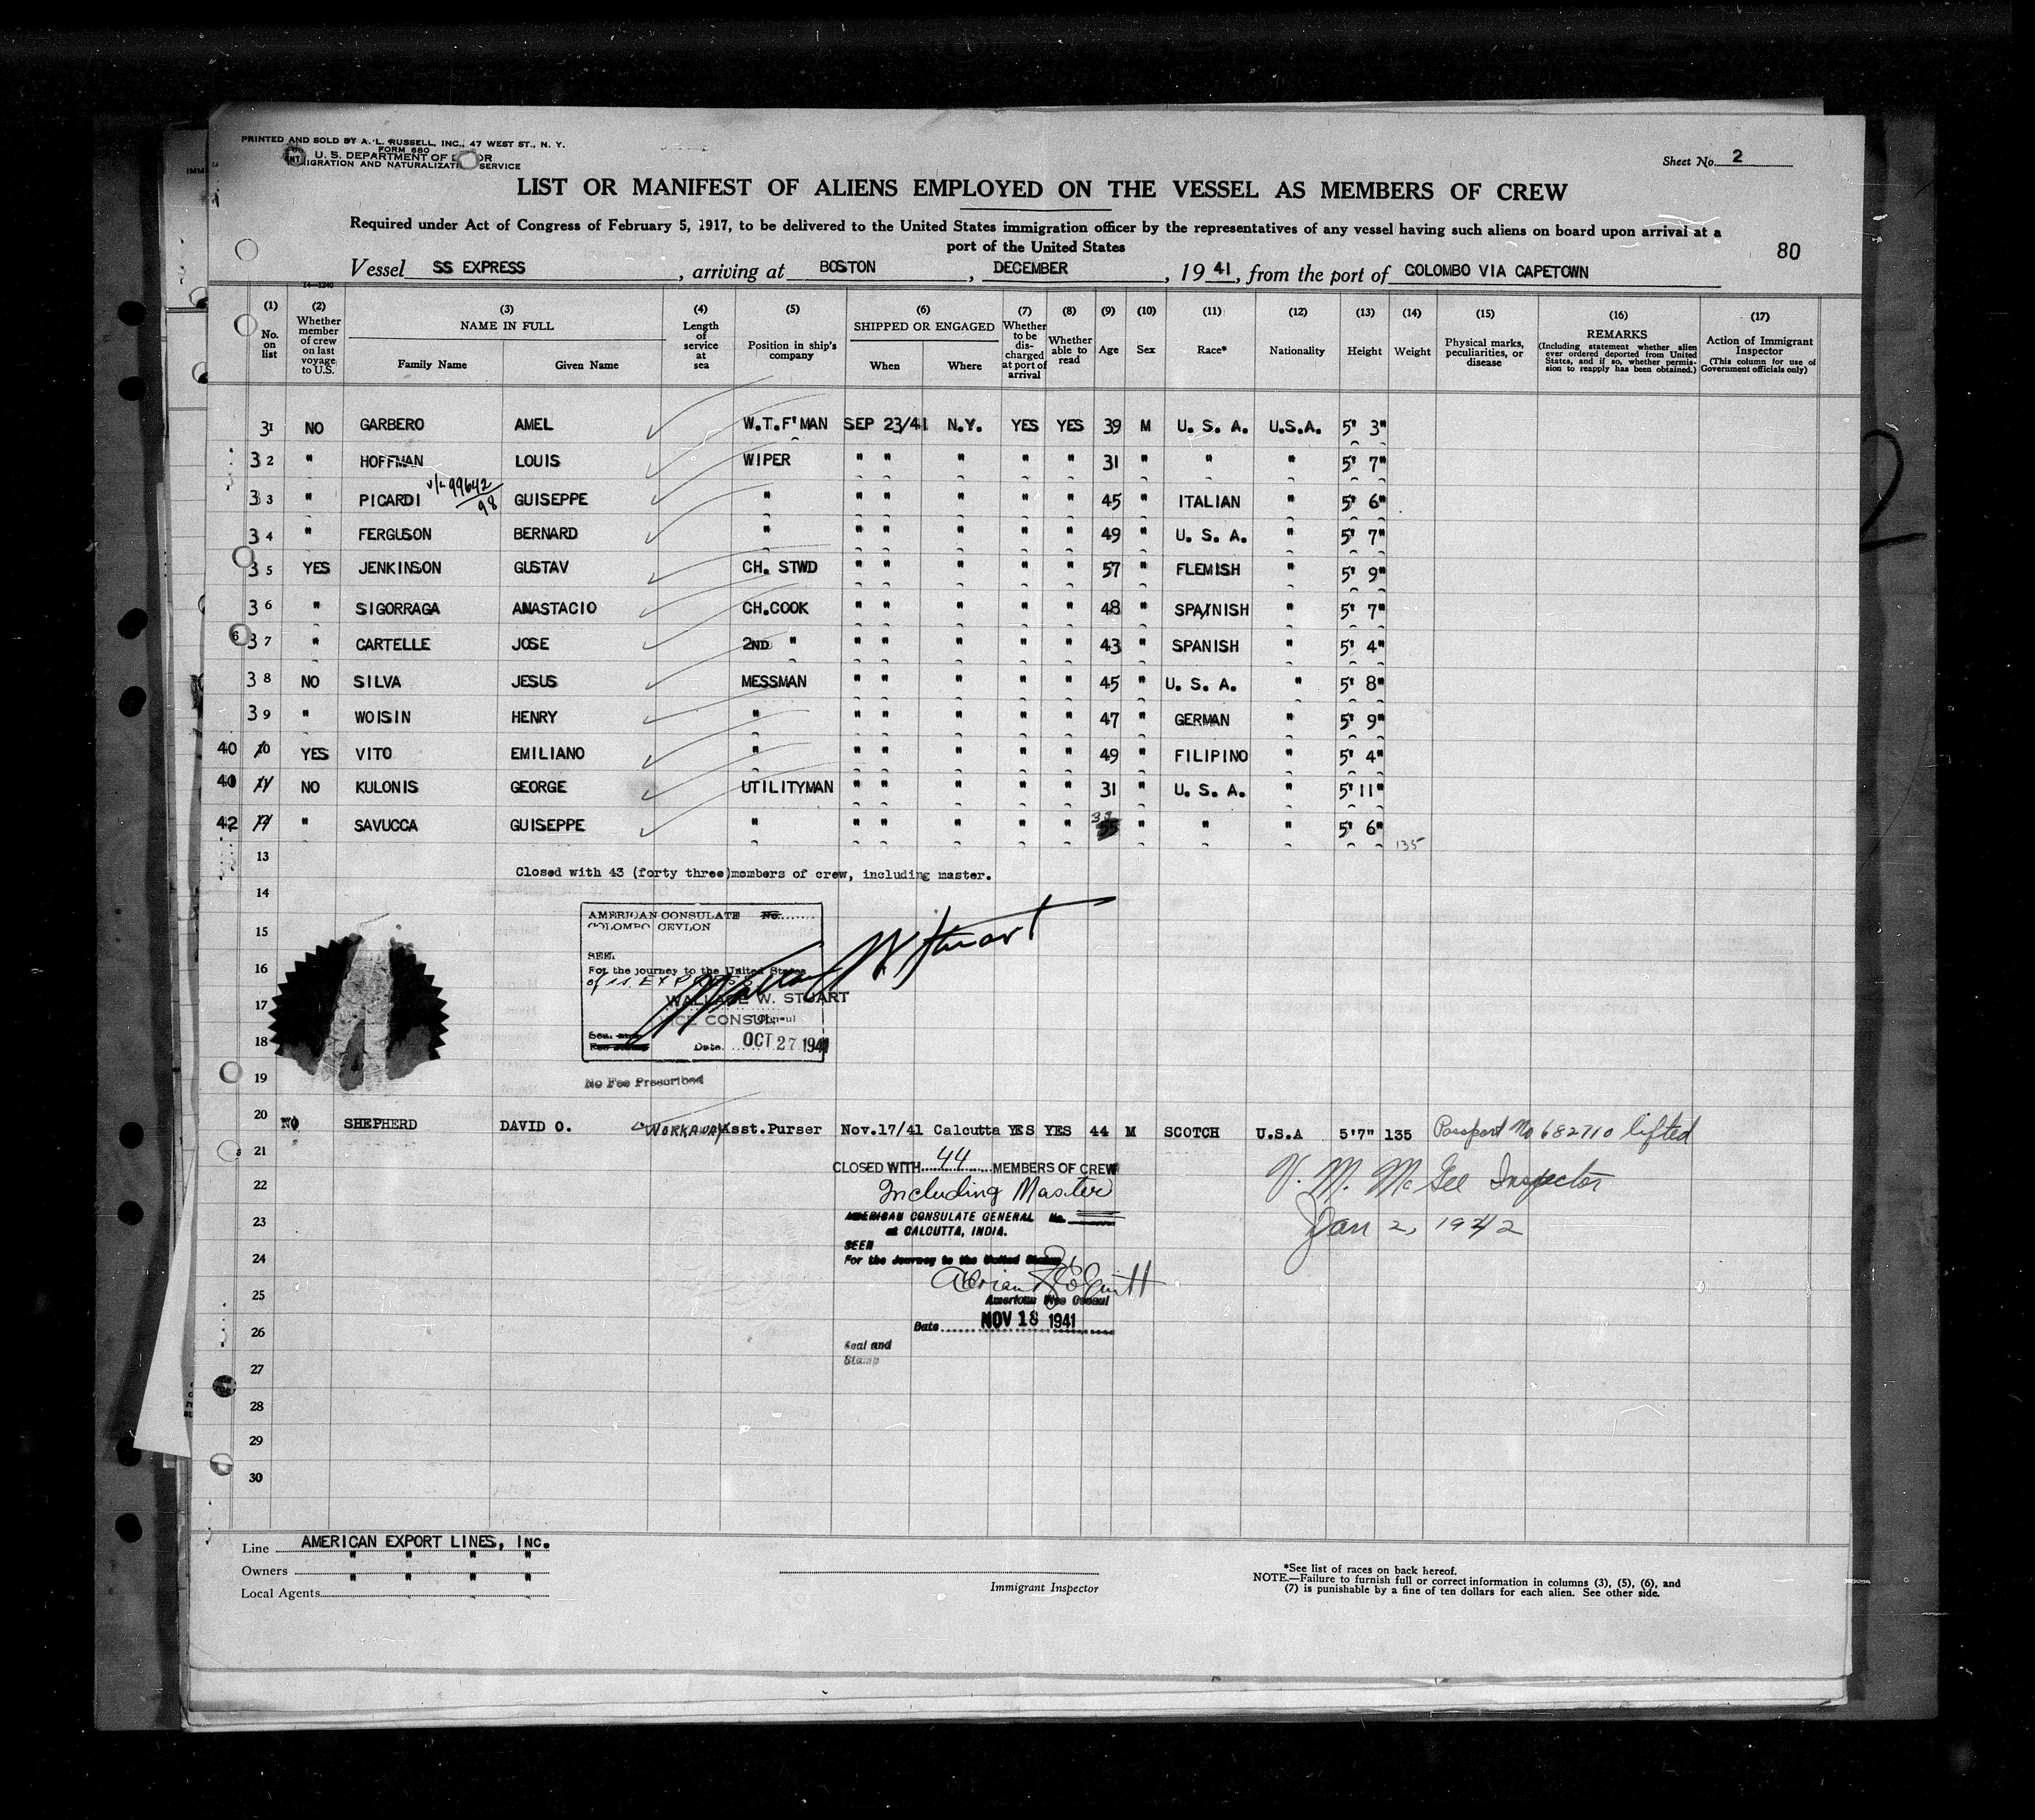 PRINTED AND SOLD BY A. L. RUSSELL, INC., 47 WEST ST., N. Y.
FORM 680
U. S. DEPARTMENT OF
IMMIGRATION AND NATURALIZATION SERVICE
Sheet No. 2
LIST OR MANIFEST OF ALIENS EMPLOYED ON THE VESSEL AS MEMBERS OF CREW
Required under Act of Congress of February 5, 1917, to be delivered to the United States immigration officer by the representatives of any vessel having such aliens on board upon arrival at a
port of the United States
80
Vessel SS EXPRESS, arriving at BOSTON, DECEMBER, 19 41, from the port of COLOMBO VIA CAPETOWN
14—1240
(1) No. on list (2) Whether member of crew on last voyage to U.S. (3) NAME IN FULL Family Name Given Name (4) Length of service at sea (5) Position in ship's company (6) SHIPPED OR ENGAGED When Where (7) Whether to be discharged at port of arrival (8) Whether able to read (9) Age (10) Sex (11) Race* (12) Nationality (13) Height (14) Weight (15) Physical marks, peculiarities, or disease (16) REMARKS (Including statement whether alien ever ordered deported from United States, and if so, whether permission to reapply has been obtained.) (17) Action of Immigrant Inspector (This column for use of Government officials only)
31 NO GARBERO AMEL W.T.F'MAN SEP 23/41 N.Y. YES YES 39 M U. S. A. U.S.A. 5' 3"
32 " HOFFMAN LOUIS WIPER " " " " " 31 " " " 5' 7"
33 " PICARDI v/c 99642/98 GUISEPPE " " " " " " 45 " ITALIAN " 5' 6"
34 " FERGUSON BERNARD " " " " " " 49 " U. S. A. " 5' 7"
35 YES JENKINSON GUSTAV CH. STWD " " " " " 57 " FLEMISH " 5' 9"
36 " SIGORRAGA ANASTACIO CH.COOK " " " " " 48 " SPAINISH " 5' 7"
37 " CARTELLE JOSE 2ND " " " " " " 43 " SPANISH " 5' 4"
38 NO SILVA JESUS MESSMAN " " " " " 45 " U. S. A. " 5' 8"
39 " WOISIN HENRY " " " " " " 47 " GERMAN " 5' 9"
40 10 YES VITO EMILIANO " " " " " " 49 " FILIPINO " 5' 4"
41 11 NO KULONIS GEORGE UTILITYMAN " " " " " 31 " U. S. A. " 5' 11"
42 12 " SAVUCCA GUISEPPE " " " " " " " " " 5' 6" 135
13
Closed with 43 (forty three)members of crew, including master.
14
AMERICAN CONSULATE No.
COLOMBO CEYLON
15
SEEN
16
For the journey to the United States
of ss. EXPRESS
Wallace W Stuart
17
WALLACE W. STUART
VICE CONSUL
18
Date OCT 27 1941
19
No Fee Prescribed
20 NO SHEPHERD DAVID O. WORKAWAY Asst.Purser Nov.17/41 Calcutta YES YES 44 M SCOTCH U.S.A 5'7" 135 Passport No 682710 lifted
21
CLOSED WITH 44 MEMBERS OF CREW
V. M. McGee Inspector
22
Including Master
23
AMERICAN CONSULATE GENERAL No.
at CALCUTTA, INDIA.
Jan 2, 1942
SEEN
24
For the Journey to the United States
25
American Vice Consul
26
Date NOV 18 1941
Seal and
Stamp
27
28
29
30
Line AMERICAN EXPORT LINES, INC.
Owners " " " "
Local Agents " " " "
Immigrant Inspector
*See list of races on back hereof.
NOTE.—Failure to furnish full or correct information in columns (3), (5), (6), and
(7) is punishable by a fine of ten dollars for each alien. See other side.
2